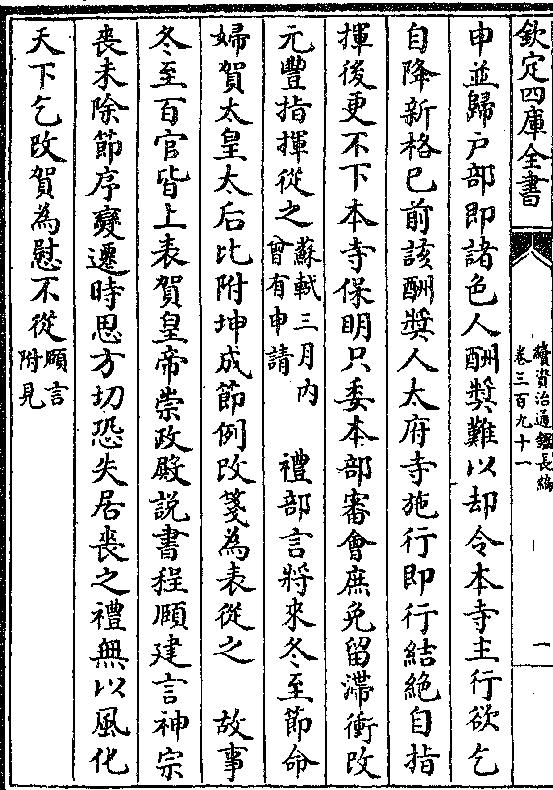 欽定四庫全書
續資治通鑑長編
卷三百九十一
一
申並歸户部即諸色人酬奬難以却令本寺主行欲乞
自降新格已前該酬奬人太府寺施行即行結絶自指
揮後更不下本寺保明只委本部審會庶免留滯衝改
元豐指揮從之蘇軾三月內曾有申請　禮部言將來冬至節命
婦賀太皇太后比附坤成節例改箋為表從之　故事
冬至百官皆上表賀皇帝崇政殿說書程頤建言神宗
喪未除節序變遷時思方切恐失居喪之禮無以風化
天下乞改賀為慰不從頤言附見